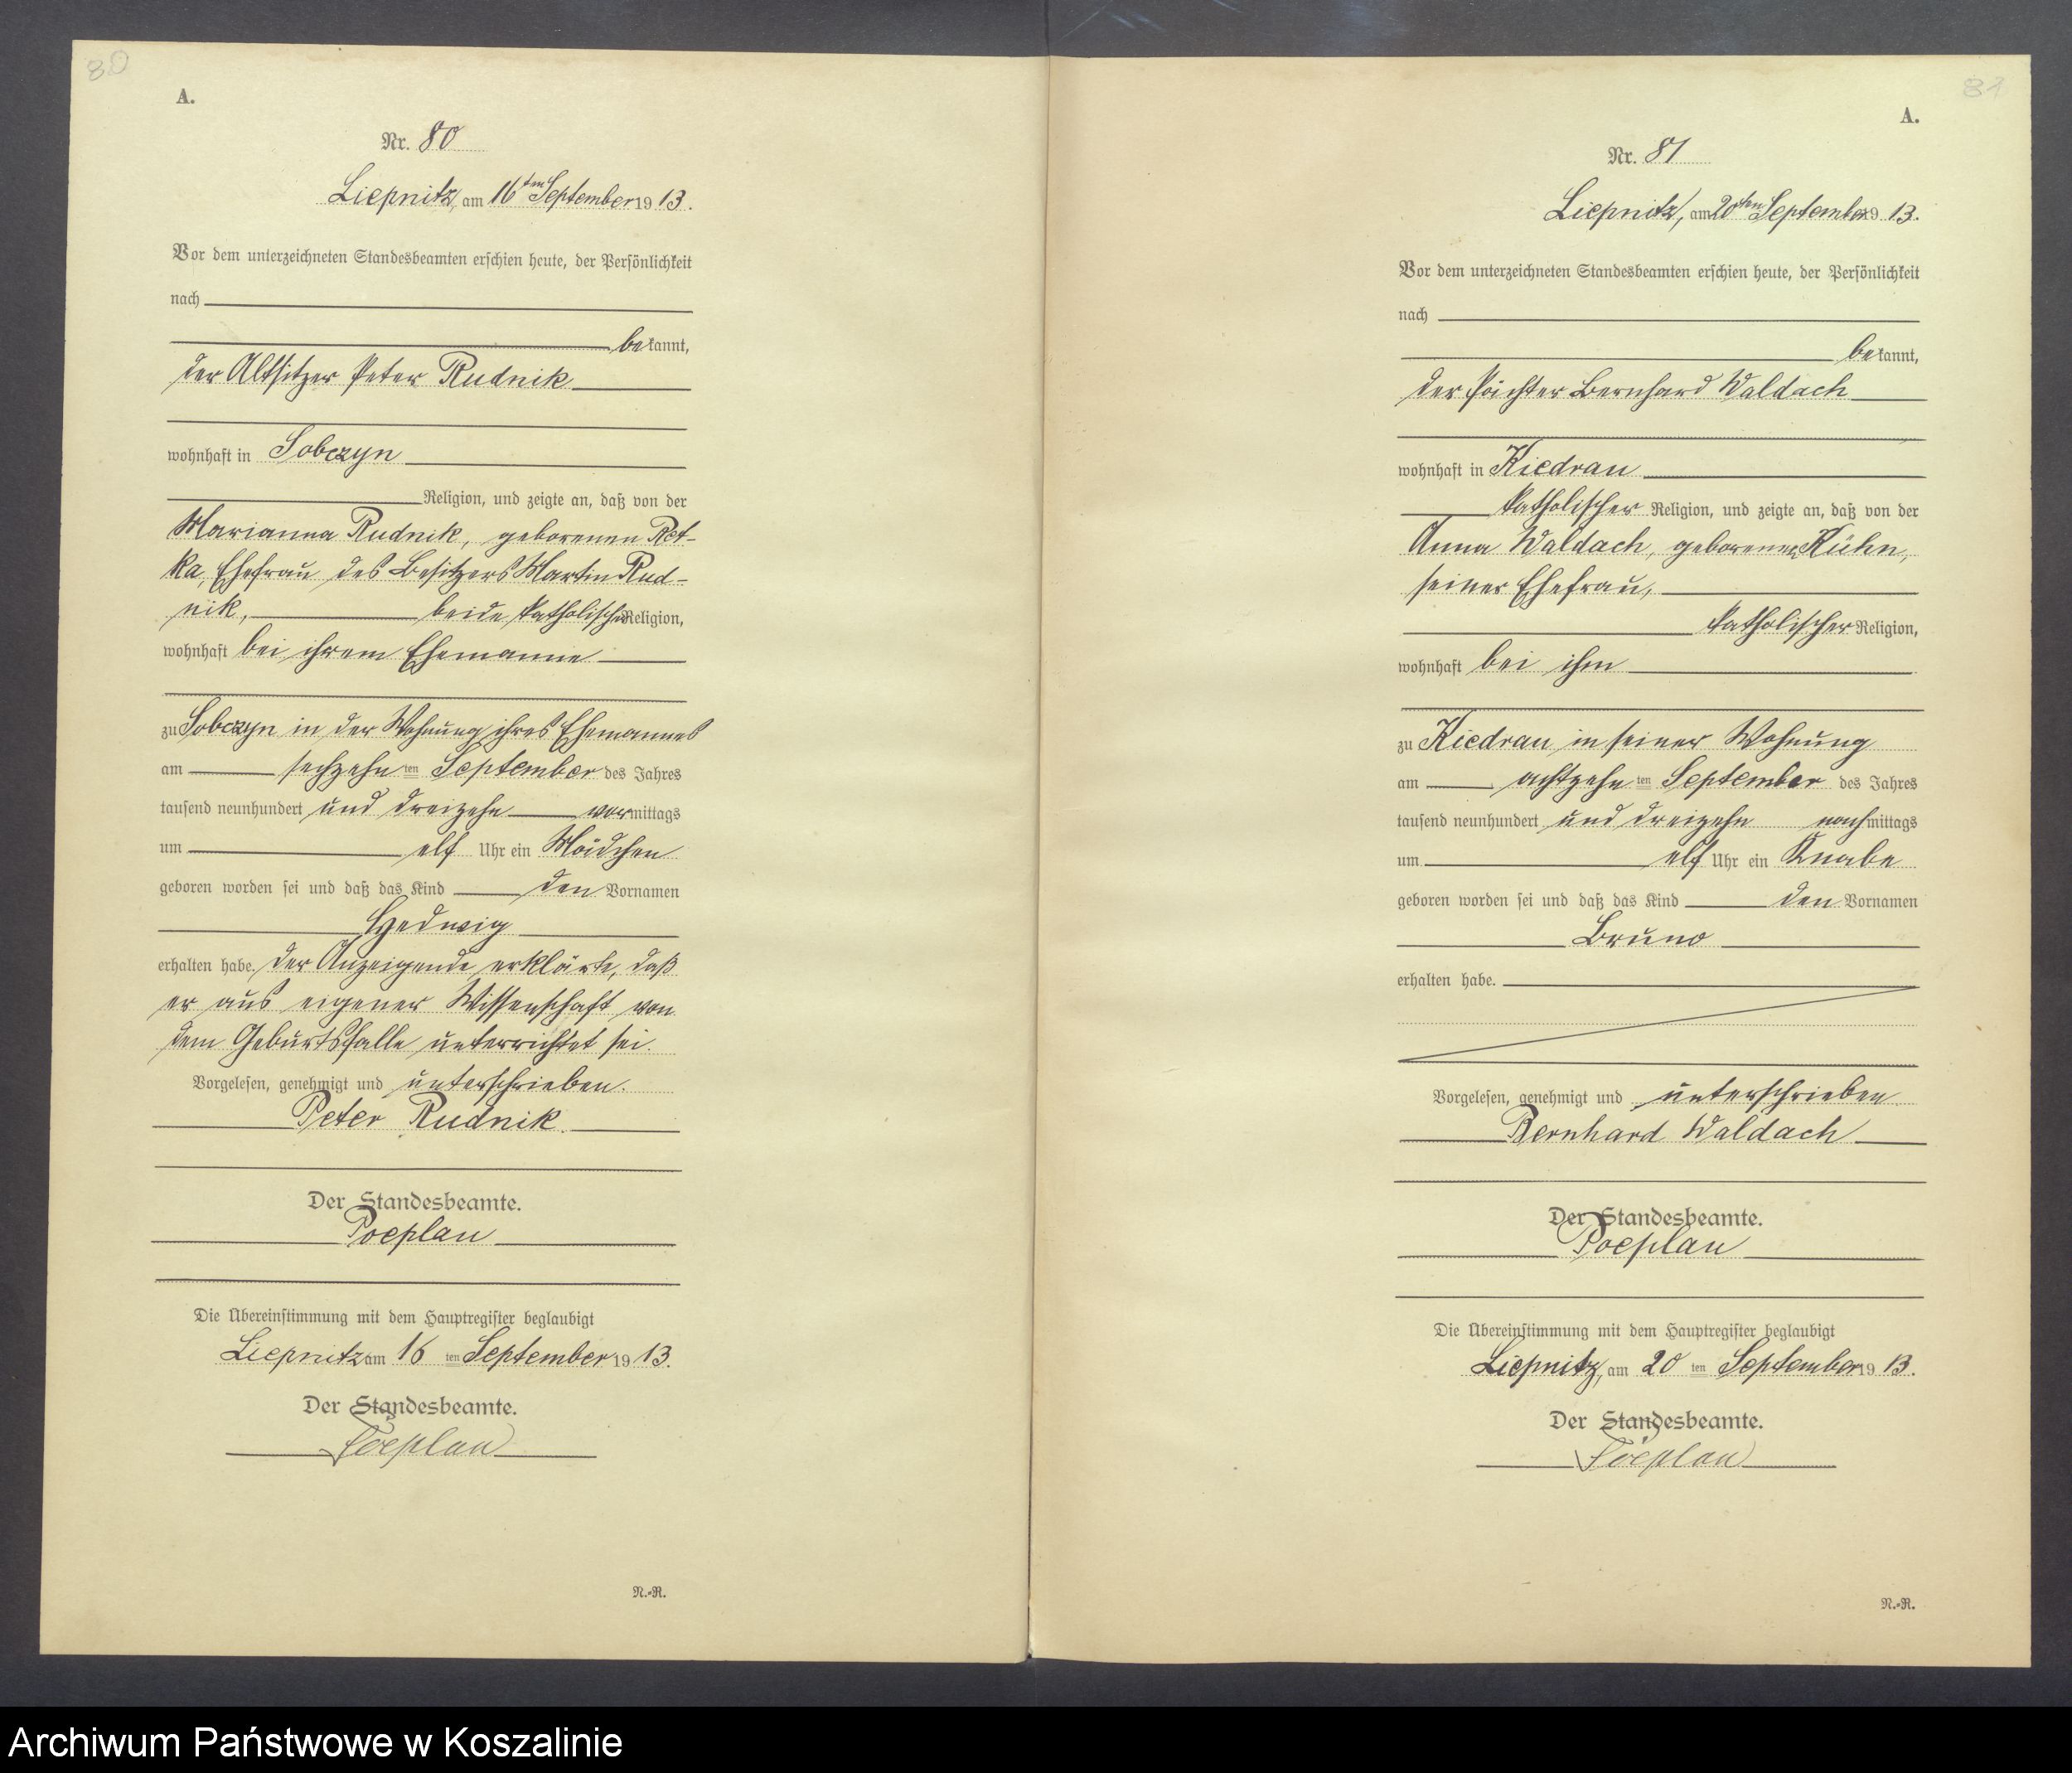 80
A.
Nr. 80
Liepnitz, am 16ten September 1913.
Vor dem unterzeichneten Standesbeamten erschien heute, der Persönlichkeit
nach
bekannt,
der Altsitzer Peter Rudnik
wohnhaft in Sobczyn
Religion, und zeigte an, daß von der
Marianna Rudnik, geborenen Ret-
ka, Ehefrau des Besitzers Martin Rud-
nik, beide katholischer Religion,
wohnhaft bei ihrem Ehemanne
zu Sobczyn in der Wohnung ihres Ehemannes
am sechzehn ten September des Jahres
tausend neunhundert und dreizehn vormittags
um elf Uhr ein Mädchen
geboren worden sei und daß das Kind den Vornamen
Hedwig
erhalten habe. Der Anzeigende erklärte, daß
er aus eigener Wissenschaft von
dem Geburtsfalle unterrichtet sei.
Vorgelesen, genehmigt und unterschrieben.
Peter Rudnik.
Der Standesbeamte.
Poeplau
Die Übereinstimmung mit dem Hauptregister beglaubigt
Liepnitz am 16 ten September 1913.
Der Standesbeamte.
Poeplau
N.-R.
81
A.
Nr. 81
Liepnitz, am 20ten September 1913.
Vor dem unterzeichneten Standesbeamten erschien heute, der Persönlichkeit
nach
bekannt,
der Pächter Bernhard Waldach
wohnhaft in Kiedrau
katholischer Religion, und zeigte an, daß von der
Anna Waldach, geborenen Kühn,
seiner Ehefrau,
katholischer Religion,
wohnhaft bei ihm
zu Kiedrau in seiner Wohnung
am achtzehn ten September des Jahres
tausend neunhundert und dreizehn nachmittags
um elf Uhr ein Knabe
geboren worden sei und daß das Kind den Vornamen
Bruno
erhalten habe.
Vorgelesen, genehmigt und unterschrieben
Bernhard Waldach
Der Standesbeamte.
Poeplau
Die Übereinstimmung mit dem Hauptregister beglaubigt
Liepnitz, am 20 ten September 1913.
Der Standesbeamte.
Poeplau
N.-R.
Archiwum Państwowe w Koszalinie